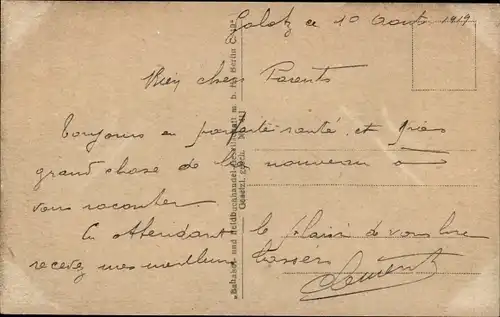 Galatz le 10 Août 1919
Bien chers Parents
Toujours en parfaite santé et pas
grand chose de nouveau a
vous raconter
En attendant le plaisir de vous lire
recevez mes meilleurs baisers
Clement
"Bahnhof- und Feldbuchhandel-Gesellschaft m. b. H., Berlin
Gesetzl. gesch.